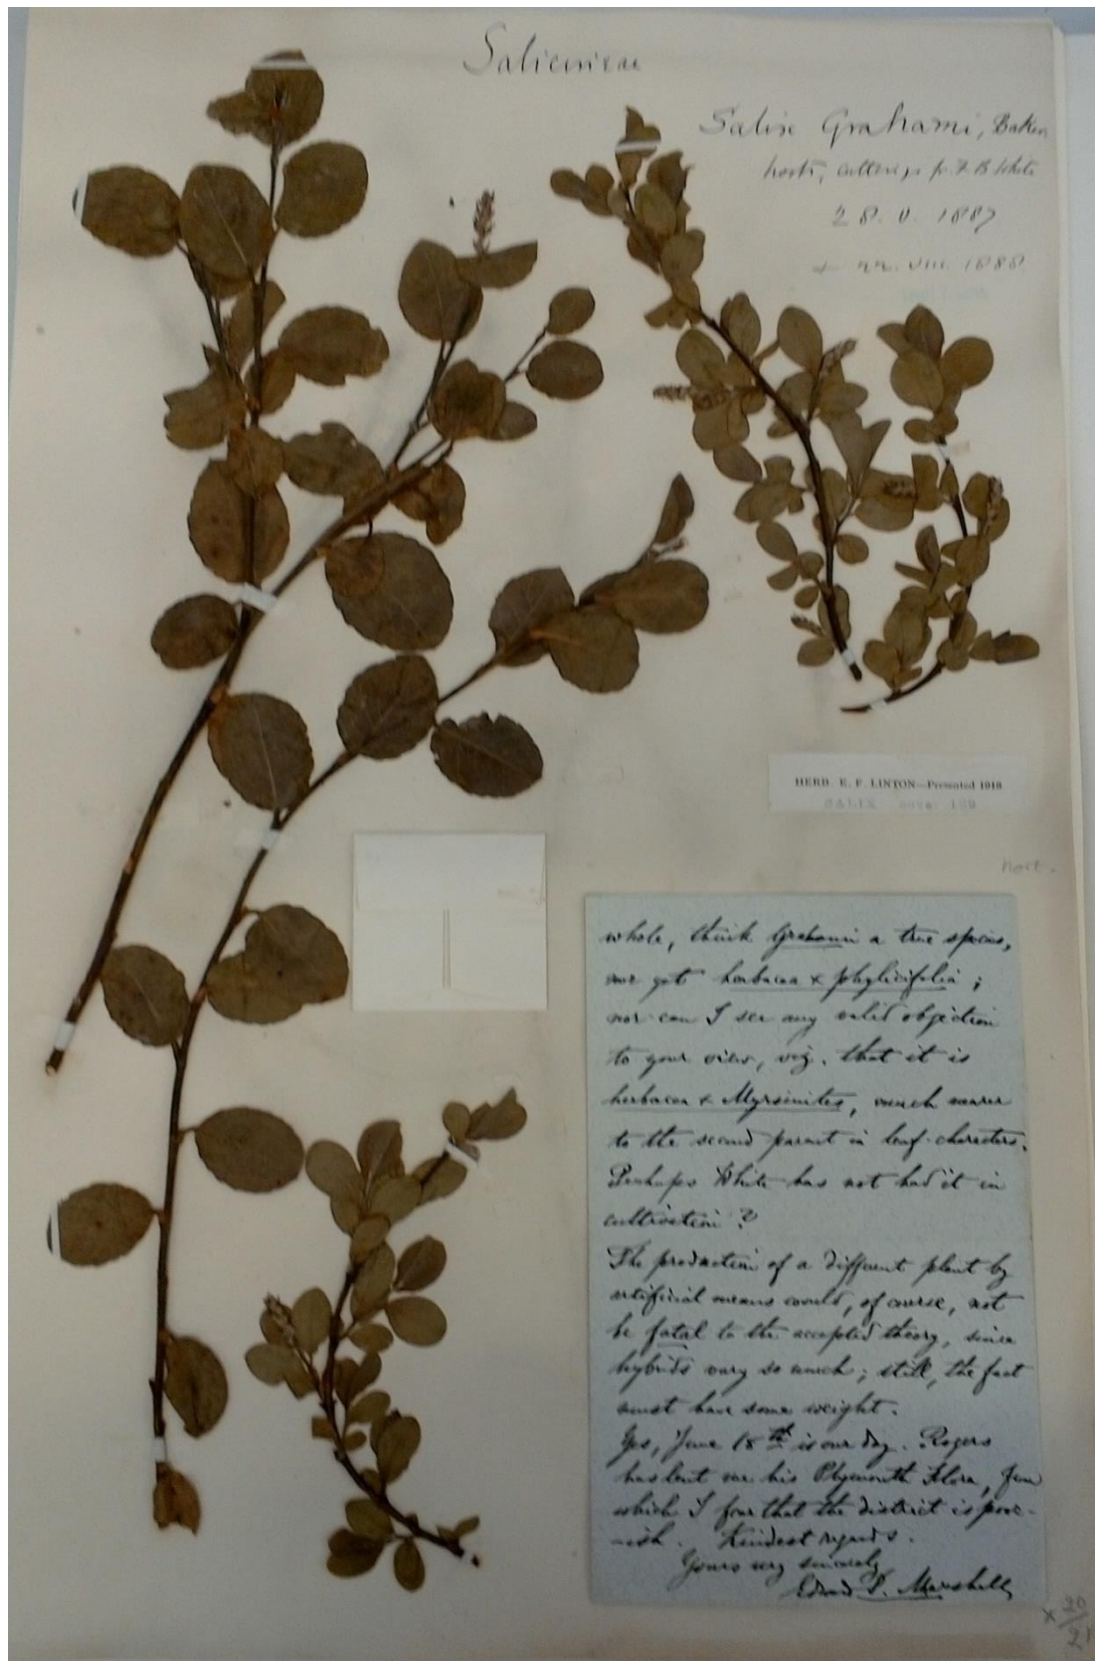 Salicineae
Salix Grahami, Baker
hort, cuttings fr. F. B. White
28. V. 1887
+ 22. VIII. 1888
HERB. E. F. LINTON—Presented 1918
SALIX 139
hort.
whole, think Grahami a true species,
nor yet herbacea × phylicifolia ;
nor can I see any valid objection
to your view, viz. that it is
herbacea × Myrsinites, much nearer
to the second parent in leaf-characters.
Perhaps White has not had it in
cultivation ?
The production of a different plant by
artificial means would, of course, not
be fatal to the accepted theory, since
hybrids vary so much ; still, the fact
must have some weight.
Yes, June 18th is our day. Rogers
has lent me his Plymouth Flora, from
which I fear that the district is poor-
-ish. Kindest regards.
Yours very sincerely
Edward S. Marshall